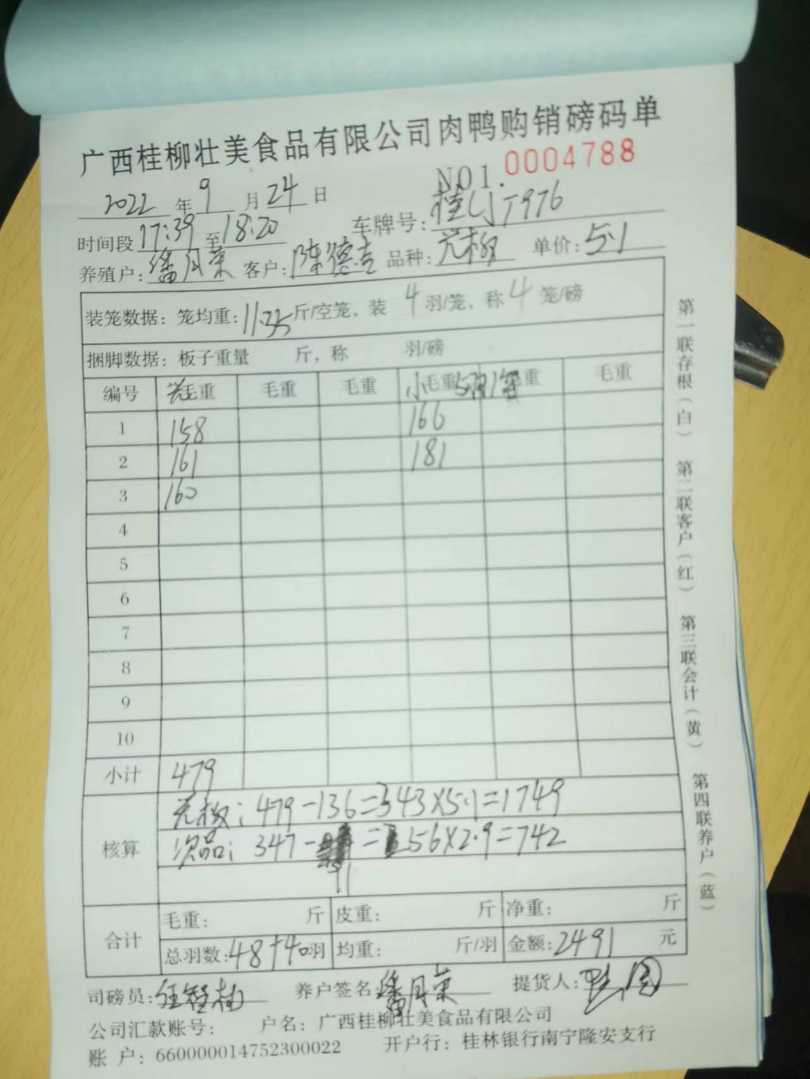 广西桂柳壮美食品有限公司肉鸭购销磅码单
NO1.0004788
2022年9月24日
时间段17:39至18:20 车牌号:桂CJT976
养殖户:潘月荣 客户:陈德吉 品种: 单价:5.1
装笼数据:笼均重:11.35斤/空笼，装4羽/笼，称4笼/磅
捆脚数据:板子重量 斤，称 羽/磅
编号 毛重 毛重 毛重 小毛重 毛重
1 158 166
2 161 181
3 160
4
5
6
7
8
9
10
小计 479
核算
479-136=343×5.1=1749
次品:347-91=256×2.9=742
合计
毛重: 斤 皮重: 斤 净重: 斤
总羽数:48+40羽 均重: 斤/羽 金额:2491元
司磅员: 养户签名:潘月荣 提货人:
公司汇款账号: 户名:广西桂柳壮美食品有限公司
账 户:660000014752300022 开户行:桂林银行南宁隆安支行
第一联存根(白) 第二联客户(红) 第三联会计(黄) 第四联养户(蓝)